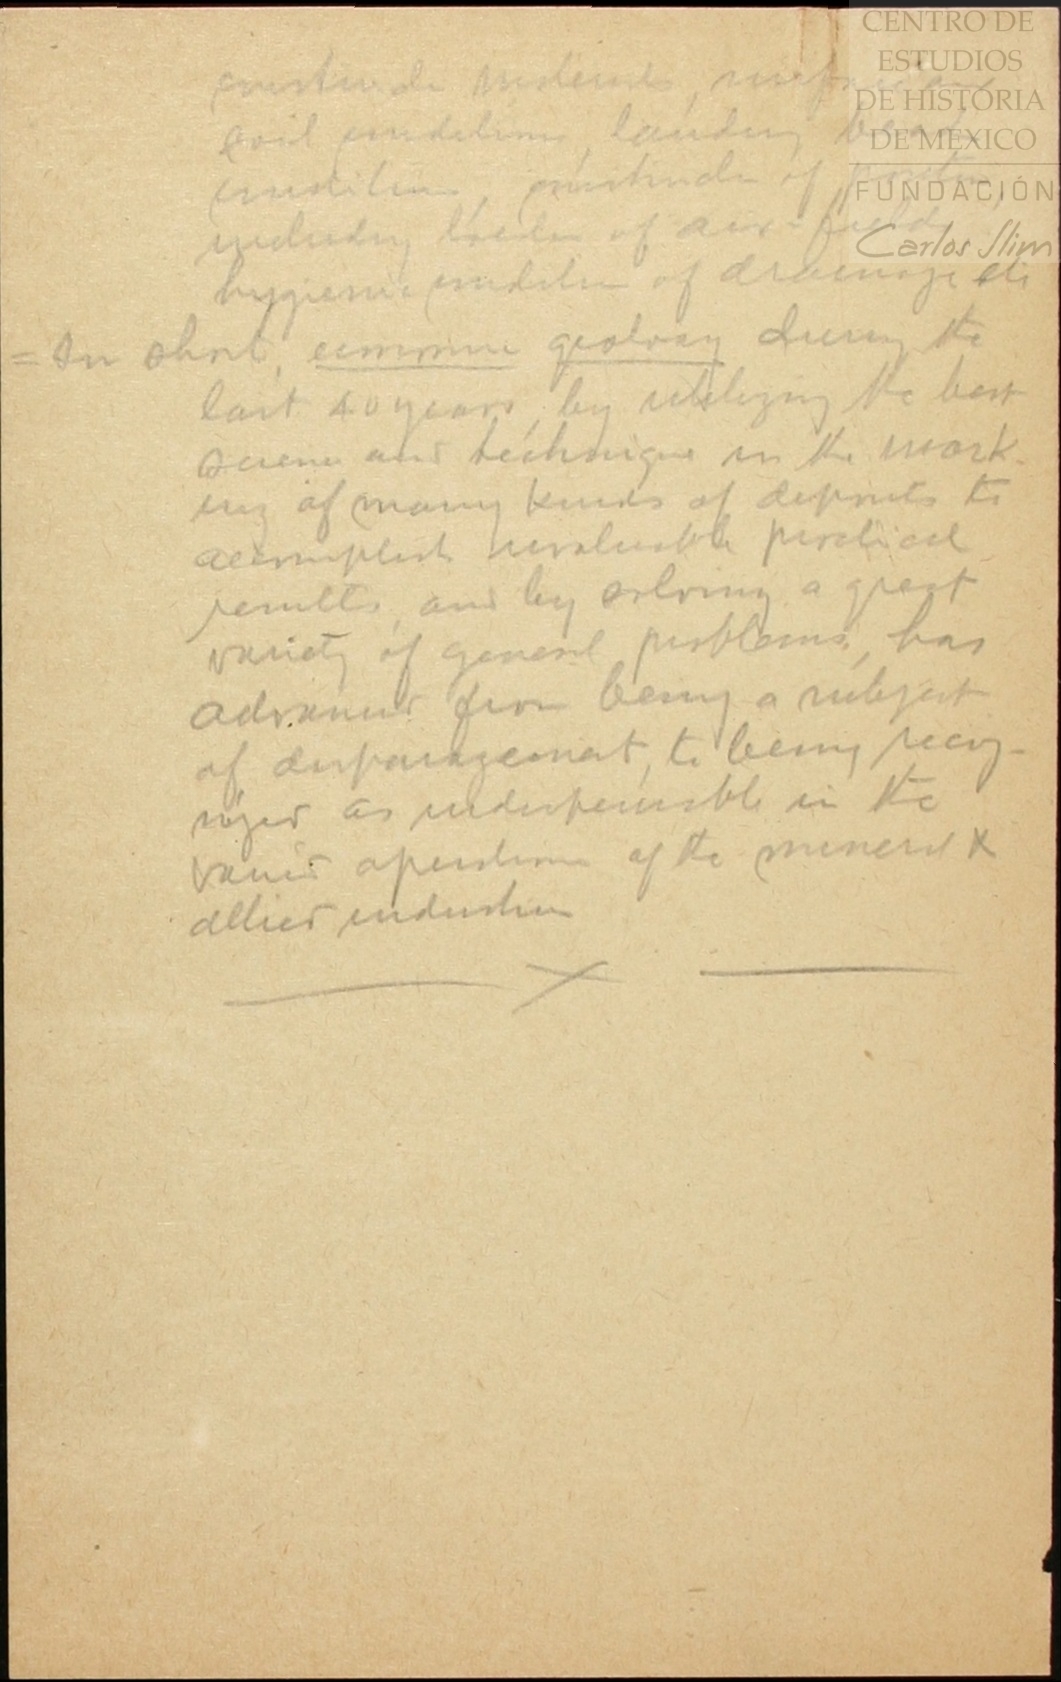 CENTRO DE
ESTUDIOS
DE HISTORIA
DE MÉXICO
FUNDACIÓN
Carlos Slim
soil conditions, landing beach
conditions, of
including of air-fields,
hygienic condition of drainage etc
= In short, economic geology during the
last 40 years, by utilizing the best
science and technique in the work-
ing of many kinds of deposits to
accomplish invaluable practical
results, and by solving a great
variety of general problems, has
advanced from being a subject
of disparagement, to being recog-
nized as indispensable in the
varied operations of the mineral &
allied industries